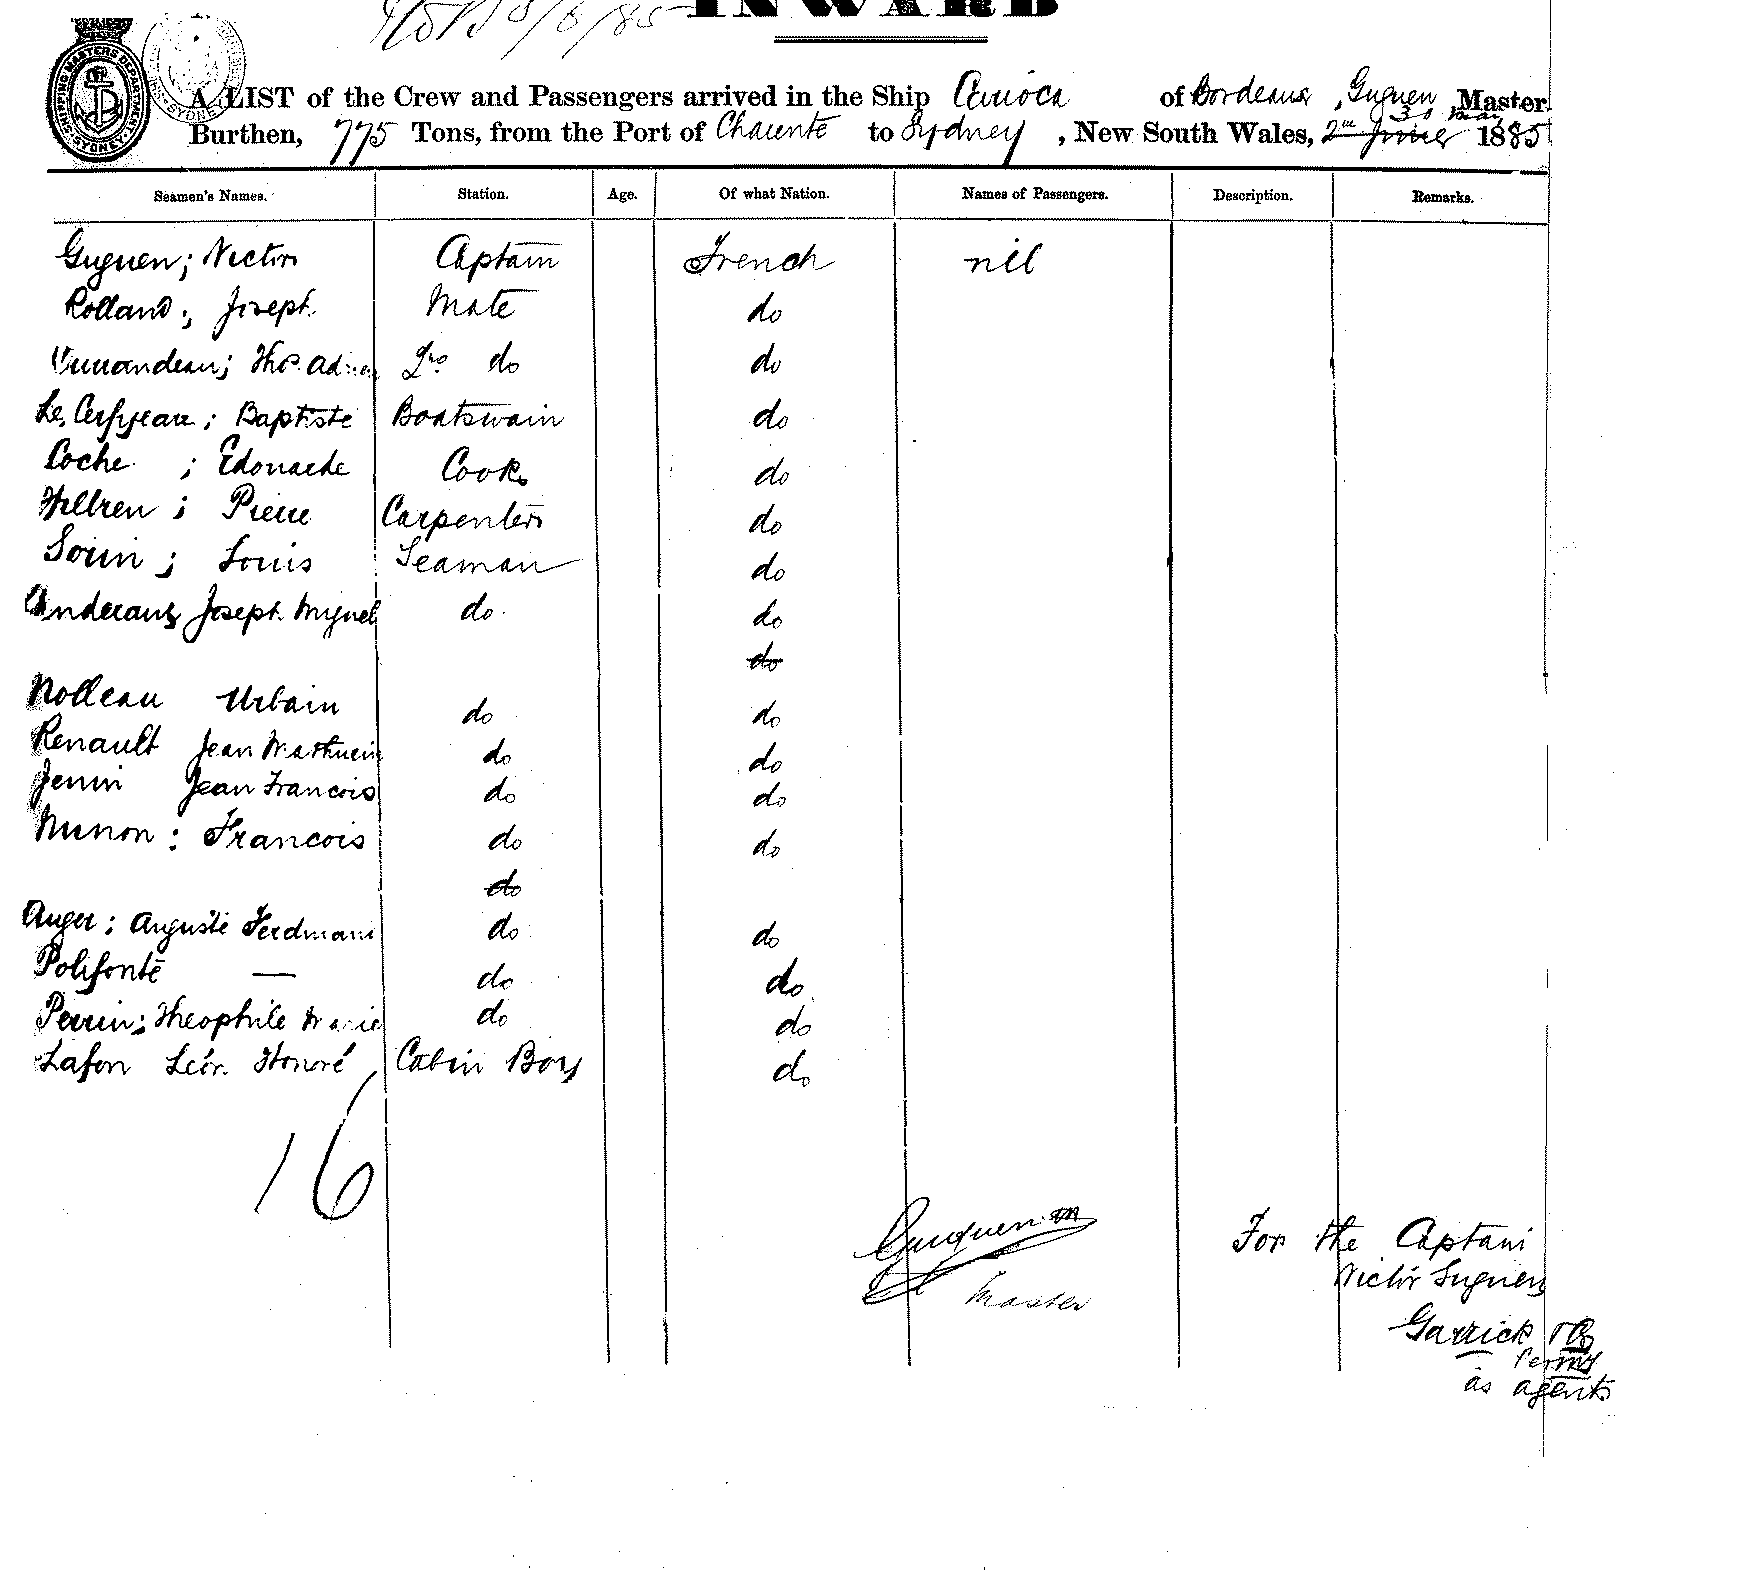 INWARD
A LIST of the Crew and Passengers arrived in the Ship Carioca of Bordeaux, Guguen, Master
30 May
Burthen, 775 Tons, from the Port of Charente to Sydney, New South Wales, 2nd June 1885
Seamen's Names. Station. Age. Of what Nation. Names of Passengers. Description. Remarks.
Guguen; Victor Captain French nil
Rolland; Joseph Mate do
Thos. 2nd do do
Baptiste Boatswain do
Coche ; Edouarde Cook do
Hellren ; Pierre Carpenter do
Sorin ; Louis Seaman do
Joseph Miguel do do
do
Rolleau Urbain do do
Renault Jean Mathurin do do
Jenin Jean Francois do do
Menon : Francois do do
do
Auger ; Auguste Ferdinand do do
Polifonte — do do
Perrin; Theophile Marie do do
Lafon Léon Honoré Cabin Boy do
16
Guguen
Master
For the Captain
Victor Guguen
Garrick & Co
as agents